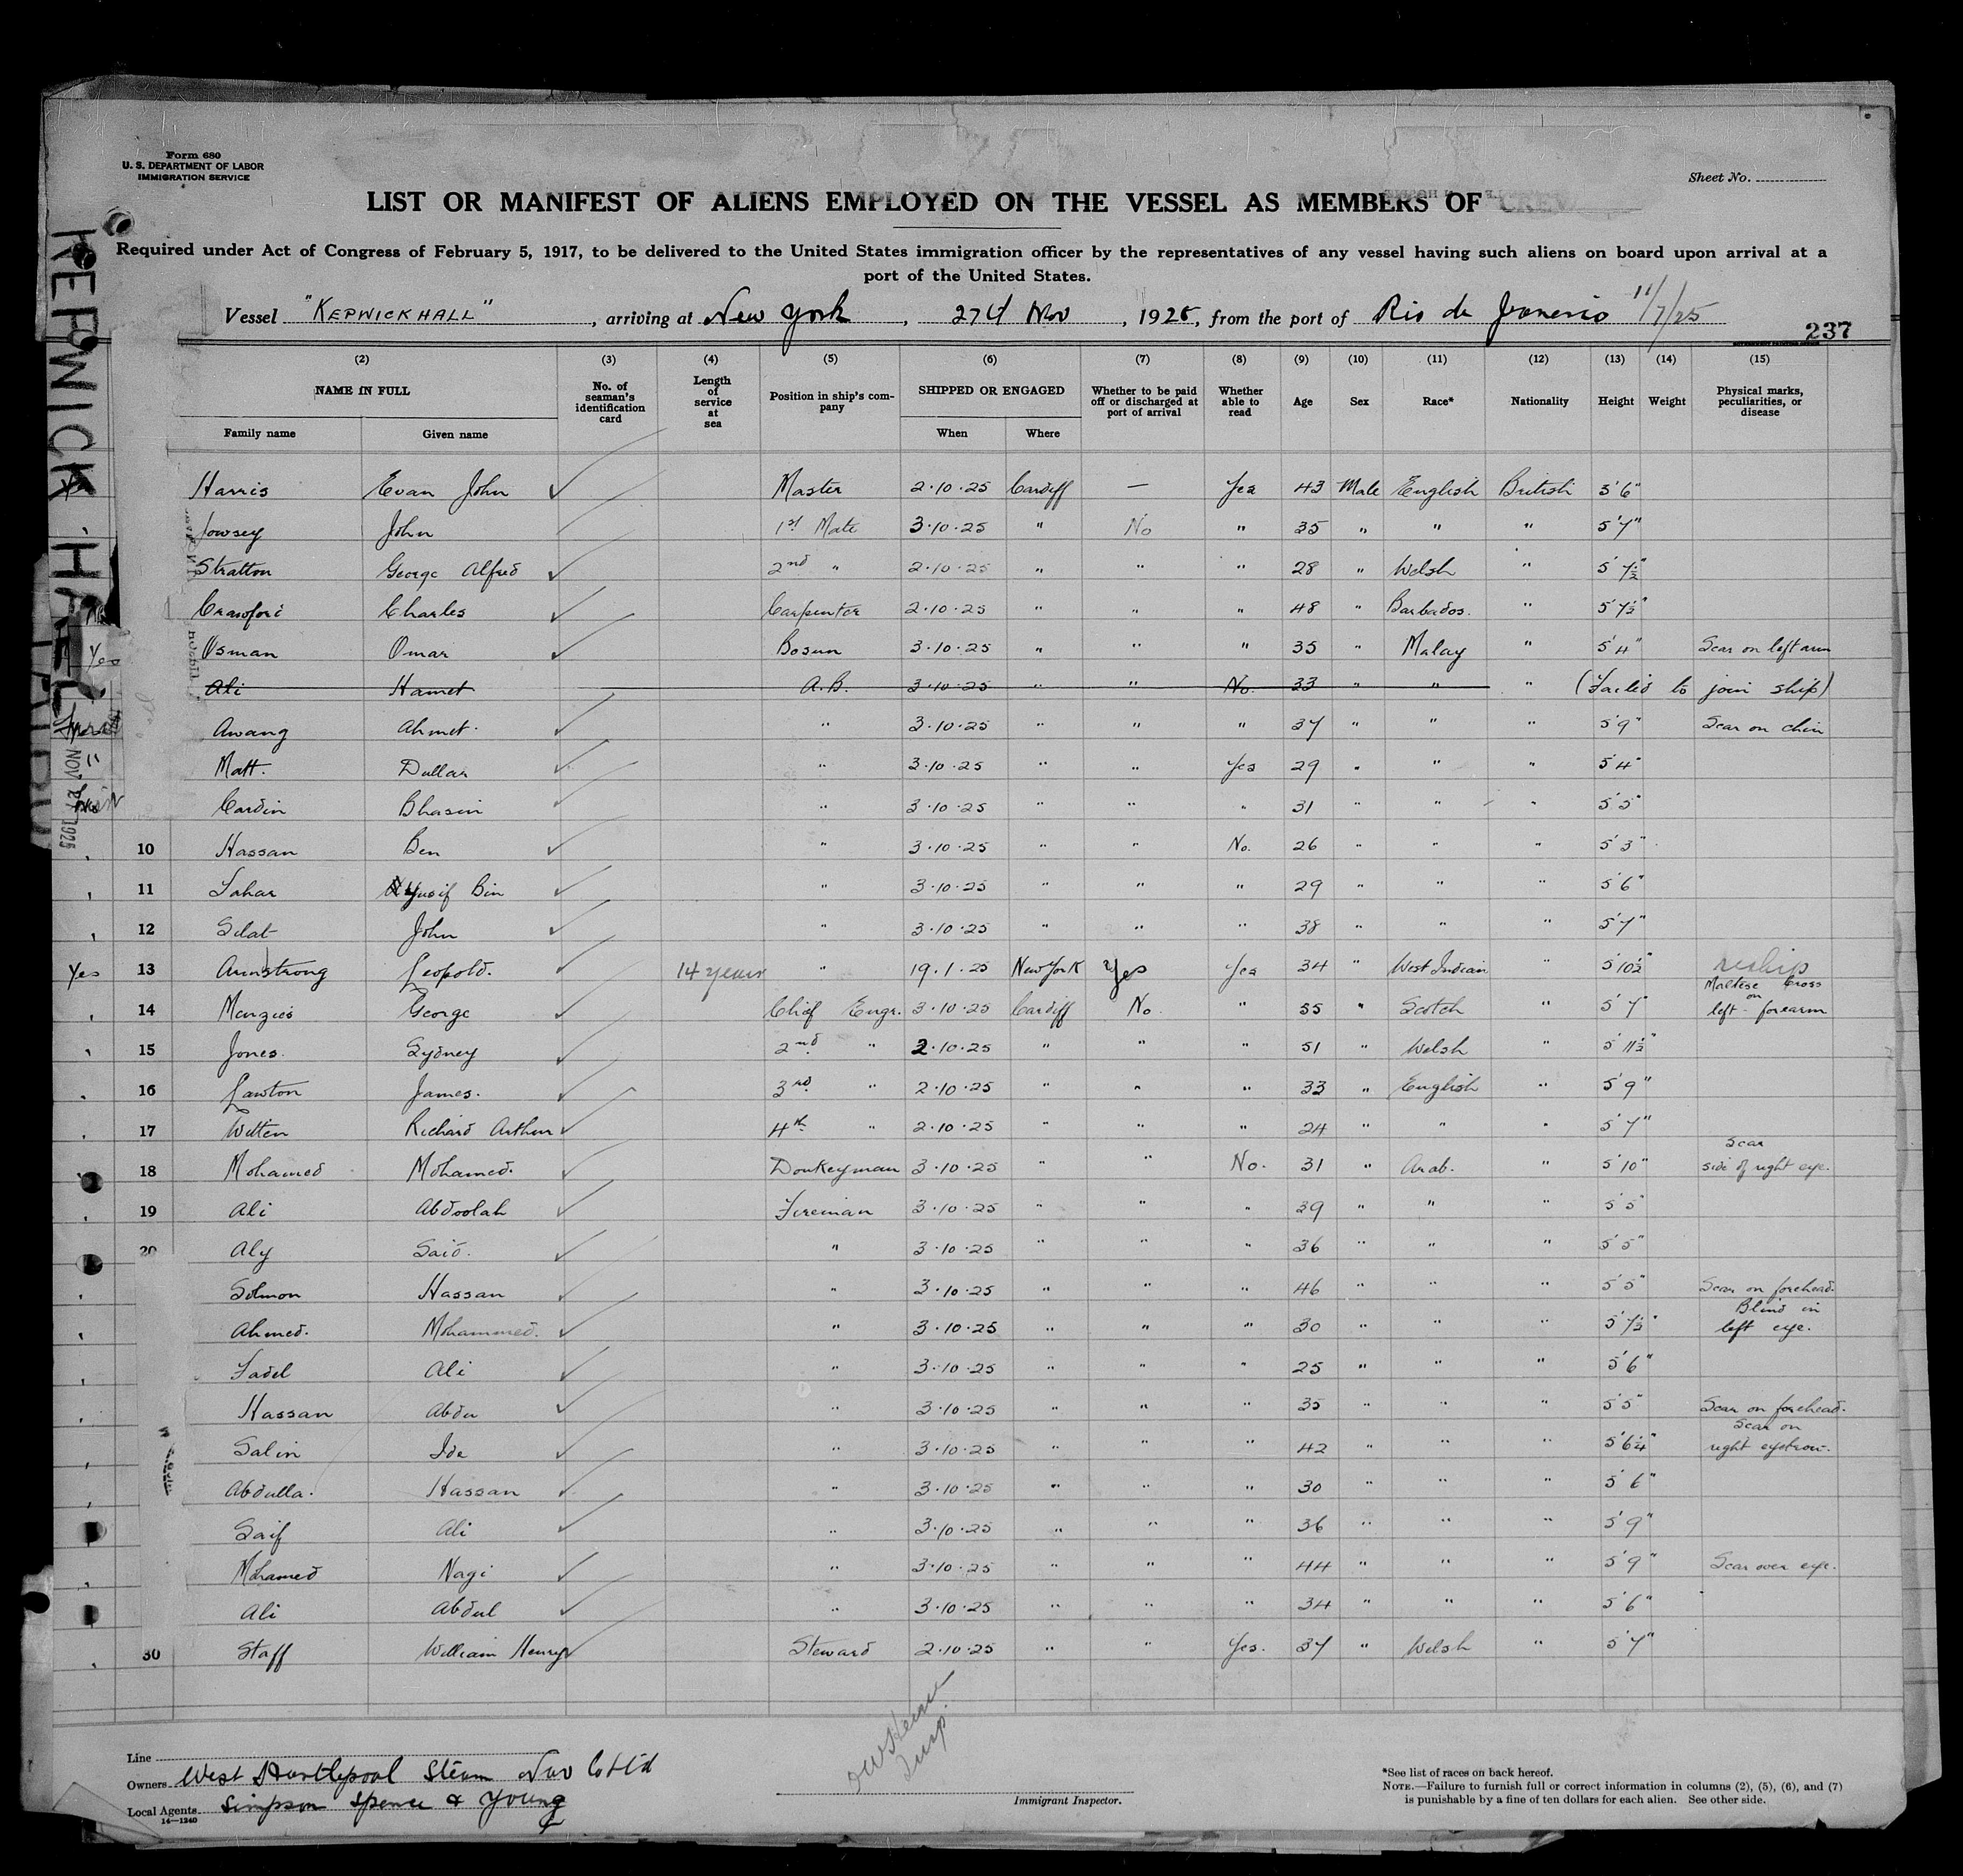 Form 680
U. S. DEPARTMENT OF LABOR
IMMIGRATION SERVICE
Sheet No.
LIST OR MANIFEST OF ALIENS EMPLOYED ON THE VESSEL AS MEMBERS OF CREW
Required under Act of Congress of February 5, 1917, to be delivered to the United States immigration officer by the representatives of any vessel having such aliens on board upon arrival at a
port of the United States.
Vessel "KEPWICKHALL", arriving at New York, 27th Nov, 1925, from the port of Rio de Janeiro 11/7/25
237
KEPWICK HALL
NOV 27 1925
(2) (3) (4) (5) (6) (7) (8) (9) (10) (11) (12) (13) (14) (15)
NAME IN FULL No. of seaman's identification card Length of service at sea Position in ship's company SHIPPED OR ENGAGED Whether to be paid off or discharged at port of arrival Whether able to read Age Sex Race* Nationality Height Weight Physical marks, peculiarities, or disease
Family name Given name When Where
Harris Evan John Master 2.10.25 Cardiff — Yes 43 Male English British 5'6"
Jowsey John 1st Mate 3.10.25 " No " 35 " " " 5'7"
Stratton George Alfred 2nd " 2.10.25 " " " 28 " Welsh " 5'7½"
Crawford Charles Carpenter 2.10.25 " " " 48 " Barbados. " 5'7½"
Yes Osman Omar Bosun 3.10.25 " " " 35 " Malay " 5'4" Scar on left arm
Ali Hamet A.B. 3.10.25 " " No. 33 " " " (Failed to join ship)
Awang Ahmet. " 3.10.25 " " " 37 " " " 5'9" Scar on chin
Matt. Dullar " 3.10.25 " " Yes 29 " " " 5'4"
Cardin Bhasin " 3.10.25 " " " 31 " " " 5'5"
10 Hassan Ben " 3.10.25 " " No. 26 " " " 5'3"
11 Lahar Yusif Bin " 3.10.25 " " " 29 " " " 5'6"
12 Selat John " 3.10.25 " " " 38 " " " 5'7"
Yes 13 Armstrong Leopold. 14 years " 19.1.25 New York Yes Yes 34 " West Indian " 5'10½" reship
14 Menzies George Chief Engr. 3.10.25 Cardiff No. " 55 " Scotch " 5'7" Maltese Cross on left forearm
15 Jones. Sydney 2nd " 2.10.25 " " " 51 " Welsh " 5'11½"
16 Lawton James. 3rd " 2.10.25 " " " 33 " English " 5'9"
17 Witten Richard Arthur 4th " 2.10.25 " " " 24 " " " 5'7"
18 Mohamed Mohamed. Donkeyman 3.10.25 " " No. 31 " Arab. " 5'10" Scar side of right eye.
19 Ali Abdoolah Fireman 3.10.25 " " " 39 " " " 5'5"
20 Aly Said. " 3.10.25 " " " 36 " " " 5'5"
Solmon Hassan " 3.10.25 " " " 46 " " " 5'5" Scar on forehead.
Ahmed. Mohammed. " 3.10.25 " " " 30 " " " 5'7½" Blind in left eye.
Fadel Ali " 3.10.25 " " " 25 " " " 5'6"
Hassan Abdu " 3.10.25 " " " 35 " " " 5'5" Scar on forehead.
Salin Ide " 3.10.25 " " " 42 " " " 5'6¼" Scar on right eyebrow.
Abdulla. Hassan " 3.10.25 " " " 30 " " " 5'6"
Saif Ali " 3.10.25 " " " 36 " " " 5'9"
Mohamed Nagi " 3.10.25 " " " 44 " " " 5'9" Scar over eye.
Ali Abdul " 3.10.25 " " " 34 " " " 5'6"
30 Staff William Henry Steward 2.10.25 " " Yes. 37 " Welsh " 5'7"
Line
Owners West Hartlepool Steam Nav Co Ltd
Local Agents Simpson Spence & Young
14—1240
Insp.
Immigrant Inspector.
*See list of races on back hereof.
NOTE.—Failure to furnish full or correct information in columns (2), (5), (6), and (7)
is punishable by a fine of ten dollars for each alien. See other side.